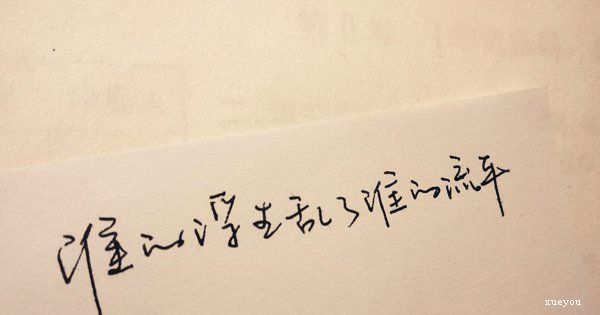 谁的浮生乱了谁的流年
xueyou